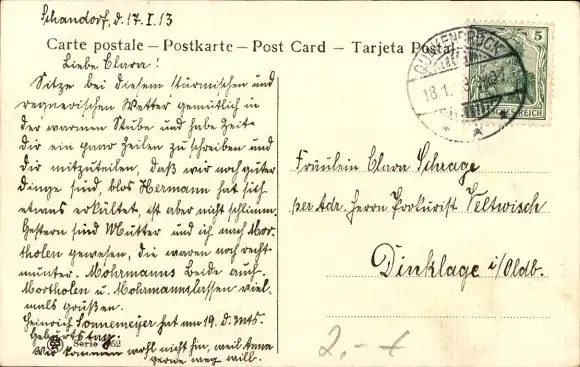 Schandorf, d. 17. I. 13
Carte postale – Postkarte – Post Card – Tarjeta Postal
Liebe Clara!
Sitze bei diesem stürmischen und
regnerischen Wetter gemütlich in
der warmen Stube und habe Zeit
dir ein paar Zeilen zu schreiben und
dir mitzuteilen, daß wir noch guter
Dinge sind, blos Hermann hat sich
etwas erkältet, ist aber nicht schlimm.
Gestern sind Mutter und ich nach Mor-
tholen gewesen, die waren noch recht
munter. Mohrmanns Beide auch.
Mortholen u. Mohrmanns lassen viel-
mals grüßen.
Heinrich Sonnemeyer hat am 19. d. Mts.
Geburtstag.
Wir kommen wohl nicht hin, weil Anna
gerne weg will.
Serie 252
QUAKENBRÜCK
18.1.
5
DEUTSCHES REICH
Fräulein Clara Schrage
per Adr. Herrn Prokurist Veltwisch
Dinklage i/Oldb.
2,-